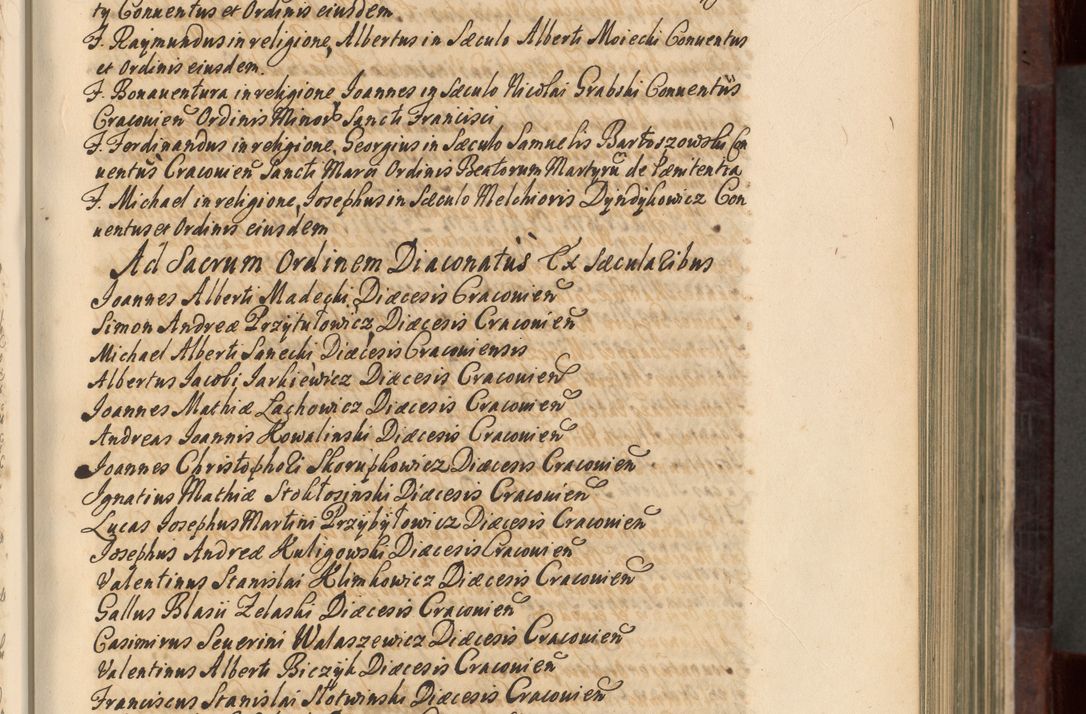 ty Conuentus et Ordinis eiusdem
F. Raymundus in religione, Albertus in Sæculo Alberti Moiecki Conuentus
et Ordinis eiusdem.
F. Bonauentura in religione, Ioannes in Sæculo Nicolai Grabski Conuentus
Cracouien Ordinis Minor Sancti Francisci
F. Ferdinandus in religione, Georgius in Sæculo Samuelis Bartoszowski Con
uentus Cracouien Sancti Marci Ordinis Beatorum Martyrũ de Pænitentia
F. Michael in religione, Iosephus in Sæculo Melchioris Dyndykowicz Con
uentus et Ordinis eiusdem
Ad Sacrum Ordinem Diaconatus Ex Sæcularibus
Ioannes Alberti Madecki Diæcesis Cracouien
Simon Andreæ Przytułowicz Diæcesis Cracouien
Michael Alberti Sanecki Diæcesis Cracouiensis
Albertus Iacobi Iarkiewicz Diæcesis Cracouien
Ioannes Mathiæ Lachowicz Diæcesis Cracouien
Andreas Ioannis Kowalinski Diæcesis Cracouien
Ioannes Christophori Skorupkowicz Diæcesis Cracouien
Ignatius Mathiæ Stokłosinski Diæcesis Cracouien
Lucas Iosephus Martini Przybyłowicz Diæcesis Cracouien
Iosephus Andreæ Kuligowski Diæcesis Cracouien
Valentinus Stanislai Klimkowicz Diæcesis Cracouien
Gallus Blasii Zelaski Diæcesis Cracouien
Casimirus Seuerini Walaszewicz Diæcesis Cracouien
Valentinus Alberti Biczyk Diæcesis Cracouien
Franciscus Stanislai Słotwinski Diæcesis Cracouien